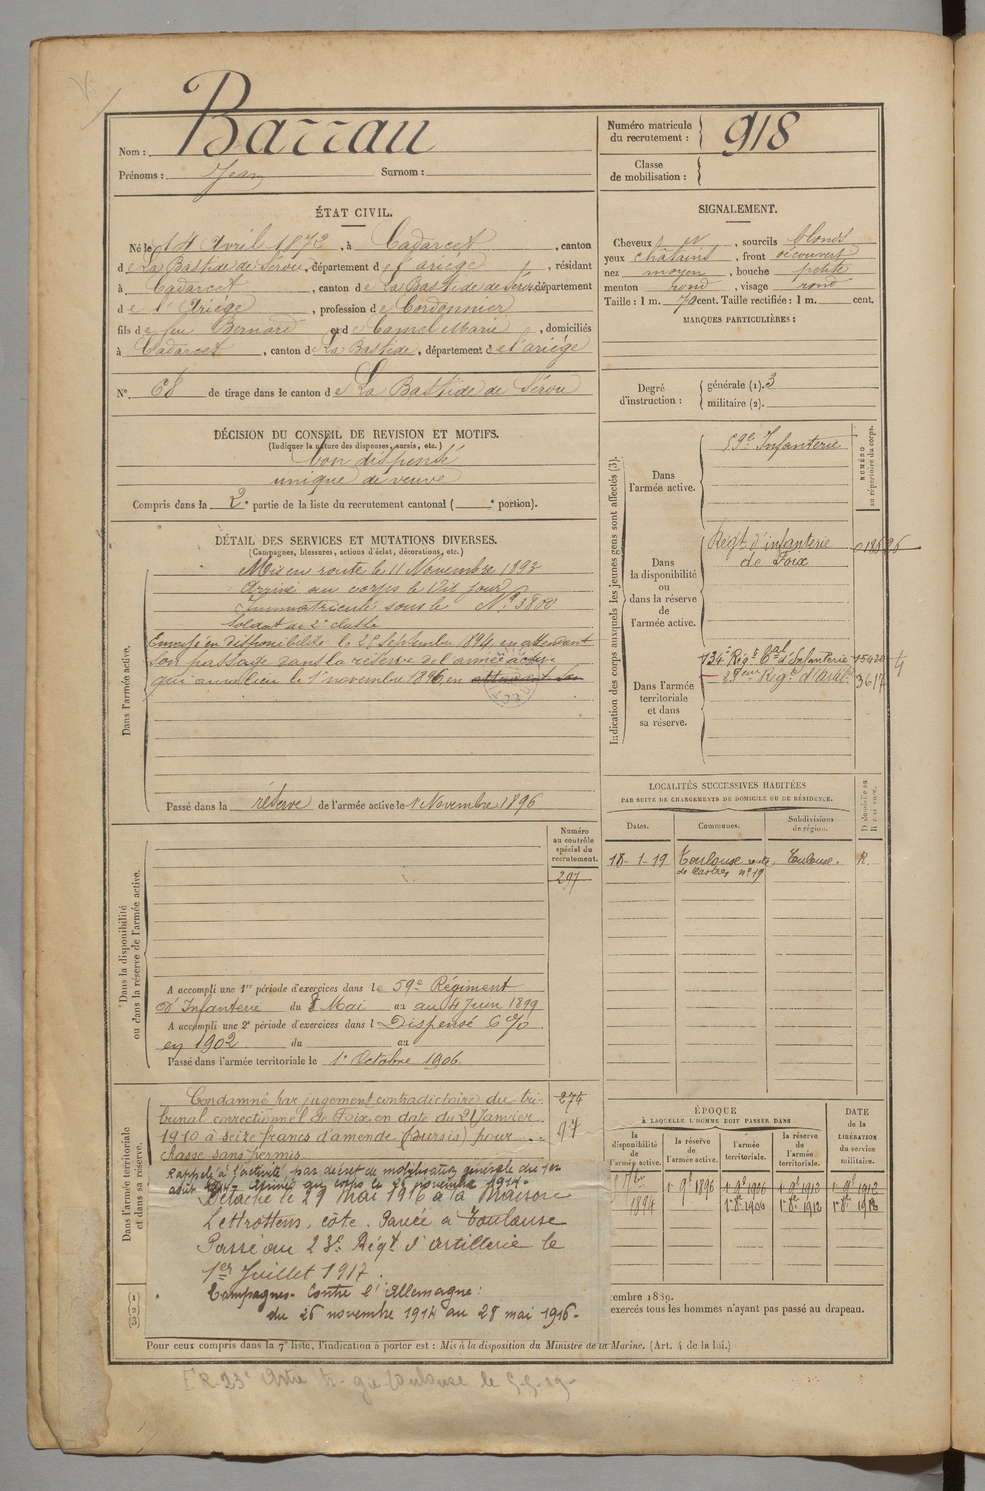 Nom : Barrau
Prénoms : Jean Surnom :
Numéro matricule du recrutement : 918
Classe de mobilisation :
ÉTAT CIVIL.
Né le 14 Avril 1872, à Cadarcet, canton
de La Bastide de Sérou, département de l'ariège, résidant
à Cadarcet, canton de La Bastide de Sérou département
de l'Ariège, profession de Cordonnier
fils de feu Bernard et de Camel Marie, domiciliés
à Cadarcet, canton de La Bastide, département de l'ariège
N°. 68 de tirage dans le canton de La Bastide de Sérou
DÉCISION DU CONSEIL DE REVISION ET MOTIFS.
(Indiquer la nature des dispenses, sursis, etc.)
bon dispensé
unique de veuve
Compris dans la 2e partie de la liste du recrutement cantonal ( e portion).
DÉTAIL DES SERVICES ET MUTATIONS DIVERSES.
(Campagnes, blessures, actions d'éclat, décorations, etc.)
Dans l'armée active.
Mis en route le 11 Novembre 1893
arrivé au corps le dit jour
immatriculé sous le N° 3800
Soldat de 2e classe
Envoyé en disponibilité le 25 Septembre 1894 en attendant
son passage dans la réserve de l'armée active
qui aura lieu le 1 novembre 1896, en attendant son
Passé dans la réserve de l'armée active le 1 Novembre 1896
Dans la disponibilité ou dans la réserve de l'armée active.
Numéro au contrôle spécial du recrutement.
297
A accompli une 1re période d'exercices dans le 59e Régiment
d'Infanterie du 8 Mai au au 4 Juin 1899
A accompli une 2e période d'exercices dans l Dispensé 6 o/o
en 1902 du au
Passé dans l'armée territoriale le 1er Octobre 1906
Dans l'armée territoriale et dans sa réserve.
274
97
Condamné par jugement contradictoire du tri-
bunal correctionnel de Foix en date du 21 Janvier
1910 à seize francs d'amende (sursis) pour
chasse sans permis
Rappelé à l'activité par décret de mobilisation générale du 1er
août 1914 Arrivé au corps le 26 novembre 1914.
Détaché le 29 Mai 1916 à la Maison
côte Pavée à Toulouse
Passé au 23e Régt d'artillerie le
1er Juillet 1917.
Campagnes contre l'Allemagne :
du 26 novembre 1914 au 28 mai 1916.
(1)
(2)
(3)
Pour ceux compris dans la 7e liste, l'indication à porter est : Mis à la disposition du Ministre de la Marine. (Art. 4 de la loi.)
SIGNALEMENT.
Cheveux , sourcils blonds
yeux chatains, front découvert
nez moyen, bouche petite
menton rond, visage rond
Taille : 1 m. 70 cent. Taille rectifiée : 1 m. cent.
MARQUES PARTICULIÈRES :
Degré d'instruction : générale (1). 3
militaire (2).
Indication des corps auxquels les jeunes gens sont affectés (3).
NUMÉRO au répertoire du corps.
Dans l'armée active.
59e Infanterie
Dans la disponibilité ou dans la réserve de l'armée active.
Régt d'infanterie
de Foix
Dans l'armée territoriale et dans sa réserve.
134e Régt tal d'Infanterie
23eme Régt d'Artie 3617
LOCALITÉS SUCCESSIVES HABITÉES
PAR SUITE DE CHANGEMENTS DE DOMICILE OU DE RÉSIDENCE.
Dates. Communes. Subdivisions de région. D domicile ou R résidence.
18-1-19 Toulouse route de Castres n° 19 Toulouse. R.
ÉPOQUE
À LAQUELLE L'HOMME DOIT PASSER DANS
DATE DE LA LIBÉRATION DU SERVICE MILITAIRE.
la disponibilité de l'armée active. la réserve de l'armée active. l'armée territoriale. la réserve de l'armée territoriale.
1894 1 9e 1896 1 9e 1906 1 9e 1912 1 9e 1912
1 8e 1906 1 8e 1912 1 8e 1918
cembre 1889.
exercés tous les hommes n'ayant pas passé au drapeau.